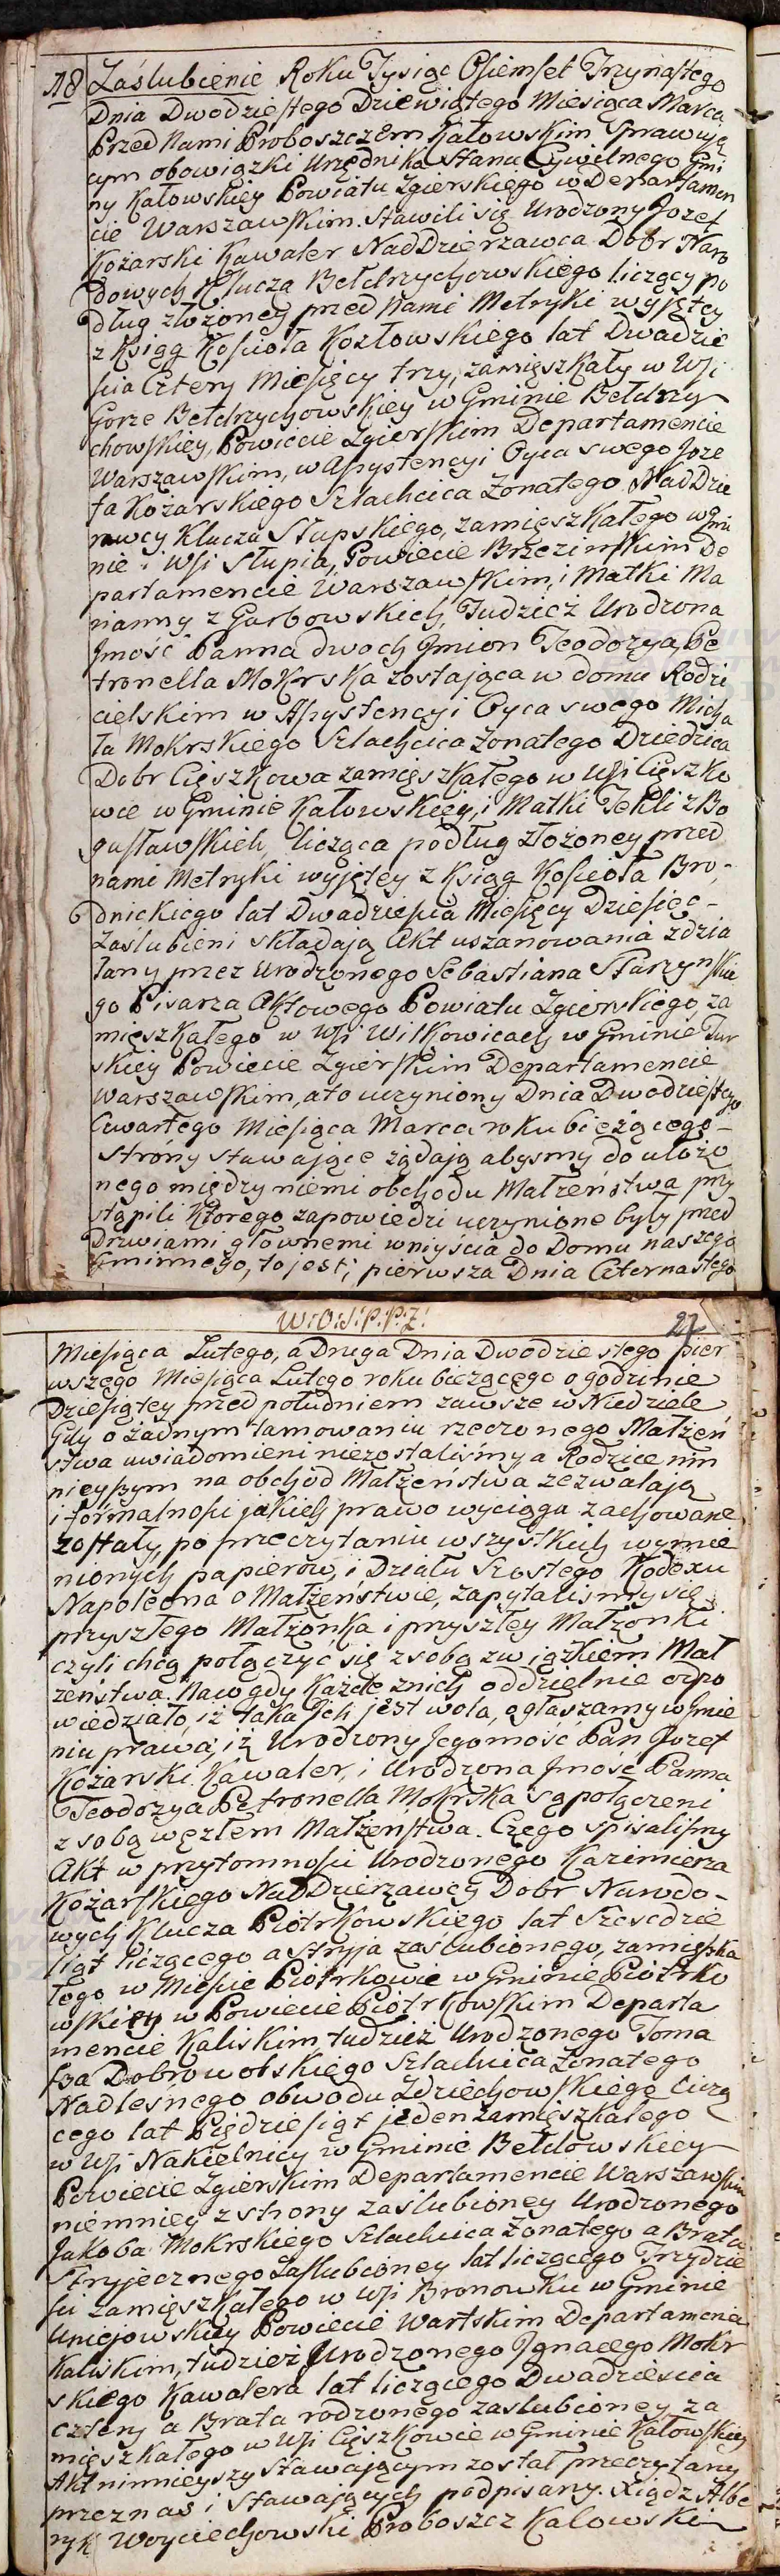 18 Zaślubienie Roku Tysiąc Osiemset Trzynastego
Dnia Dwodziestego Dziewiątego Miesiąca Marca
Przed Nami Proboszczem Kałowskim Sprawuią
cym obowiązki Urzędnika Stanu Cywilnego Gmi
ny Kałowskiey Powiatu Zgierskiego w Departamen
cie Warszawskim. Stawili się Urodzony Jozef
Kożarski Kawaler NadDzierzawca Dobr Naro
dowych Klucza Bełdrzychowskiego liczący po
dług złożoney przed Nami Metryki wyjętey
z Ksiąg Kościoła Kozłowskiego lat Dwadzie
scia Cztery Miesięcy trzy, zamięszkały w Wsi
Gorze Bełdrzychowskiey w Gminie Bełdrzy
chowskiey, Powiecie Zgierskim Departamencie
Warszawskim, w Assystencyi Oyca swego Joze
fa Kożarskiego Szlachcica Żonatego NadDzie
rawcy Klucza Słupskiego, zamięszkałego w Gmi
nie i Wsi Słupia, Powiecie Brzezinskim De
partamencie Warszawskim, i Matki Ma
rianny z Garbowskich, Tudzież Urodzona
Jmość Panna dwoch Jmion Teodozya Pe
tronella Mokrska zostająca w domu Rodzi
cielskim w Assystencyi Oyca swego Micha
ła Mokrskiego Szlachcica Żonatego Dziedzica
Dobr Cięszkowa zamięszkałego w Wsi Cięszko
wie w Gminie Kałowskiey, i Matki Tekli z Bo
gusławskich, licząca podług złożoney przed
nami Metryki wyjętey z Ksiąg Kościoła Bro-
dnickiego lat Dwadziescia Miesięcy Dziesięć-
Zaślubieni składają Akt uszanowania zdzia
łany przez Urodzonego Sebastiana Starzyńskie
go Pisarza Aktowego Powiatu Zgierskiego za
mięszkałego w Wsi Wilkowicach w Gminie Tur
skiey Powiecie Zgierskim Departamencie
Warszawskim, a to uczyniony Dnia Dwodziestego
Czwartego Miesiąca Marca roku bieżącego-
Strony stawające żądają abysmy do ułożo
nego między niemi obchodu Małżeństwa przy
stąpili Ktorego zapowiedzi uczynione były przed
Drzwiami głownemi wniyścia do Domu naszego
Gminnego, to jest; pierwsza Dnia Czternastego
W:O:S:P:P:Z: 27
Miesiąca Lutego, a Druga Dnia Dwodziestego pier
wszego Miesiąca Lutego roku bieżącego o godzinie
Dziesiątey przed południem zawsze w Niedziele
Gdy o żadnym tamowaniu rzeczonego Małżeń
stwa uwiadomieni niezostaliśmy a Rodzice nin
nieyszym na obchód Małżeństwa zezwalają
i formalności jakich prawo wyciąga zachowane
zostały, po przeczytaniu wszystkich wymie
nionych papierow, i Działu Szostego Kodexu
Napoleona o Małżeństwie, zapytalismy się
przyszłego Małżonka i przyszłey Małżonki
czyli chcą połączyć się z sobą związkiem Mał
żeństwa. Naco gdy każde znich oddzielnie odpo
wiedziało, iż taka Jch jest wola, ogłaszamy w Jmie
niu prawa, iż Urodzony Jegomość Pan Jozef
Kożarski Kawaler, i Urodzona Jmość Panna
Teodozya Petronella Mokrska są połączeni
z sobą węzłem Małżenstwa. Czego spisalismy
Akt w przytomności Urodzonego Kazimierza
Kożarskiego NadDzierżawcy Dobr Narodo-
wych Klucza Piotrkowskiego lat Szescdzie
siąt liczącego a stryja zaślubionego, zamięszka
łego w Miescie Piotrkowie w Gminie Piotrko
wskiey w Powiecie Piotrkowskim Departa
mencie Kaliskim tudzież Urodzonego Toma
sza Dobrowolskiego Szlachcica Żonatego
Nadlesnego obwodu Zdziechowskiego liczą
cego lat Pięćdziesiąt jeden zamięszkałego
w Wsi Nakielnicy w Gminie Bełdowskiey
Powiecie Zgierskim Departamencie Warszawskim
niemniey z strony zaślubioney Urodzonego
Jakoba Mokrskiego Szlachcica Żonatego a Brata
Stryjecznego Zaślubioney lat liczącego Trzydzie
sci zamięszkałego w Wsi Bronowku w Gminie
Uniejowskiey Powiecie Wartskim Departamencie
Kaliskim, tudzież Urodzonego Jgnacego Mokr
skiego Kawalera lat liczącego Dwadziescia
cztery a Brata rodzonego zaslubioney, za
mięszkałego w Wsi Cięszkowie w Gminie Kałowskiey
Akt ninnieyszy stawającym został przeczytany
przeznas i stawających podpisany. Xiądz Albe
ryk Woyciechowski Proboszcz Kalowski